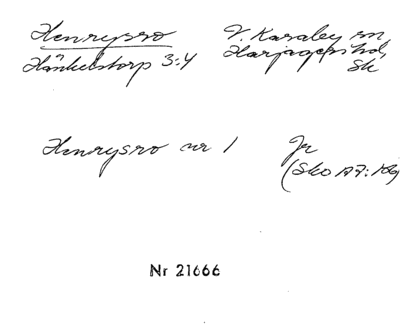 Henrysro V. Karaby sn,
Hänkelstorp 3:4 Harjagers hd,
Sk
Henrysro nr 1 Jr
(Sko A7:
Nr 21666